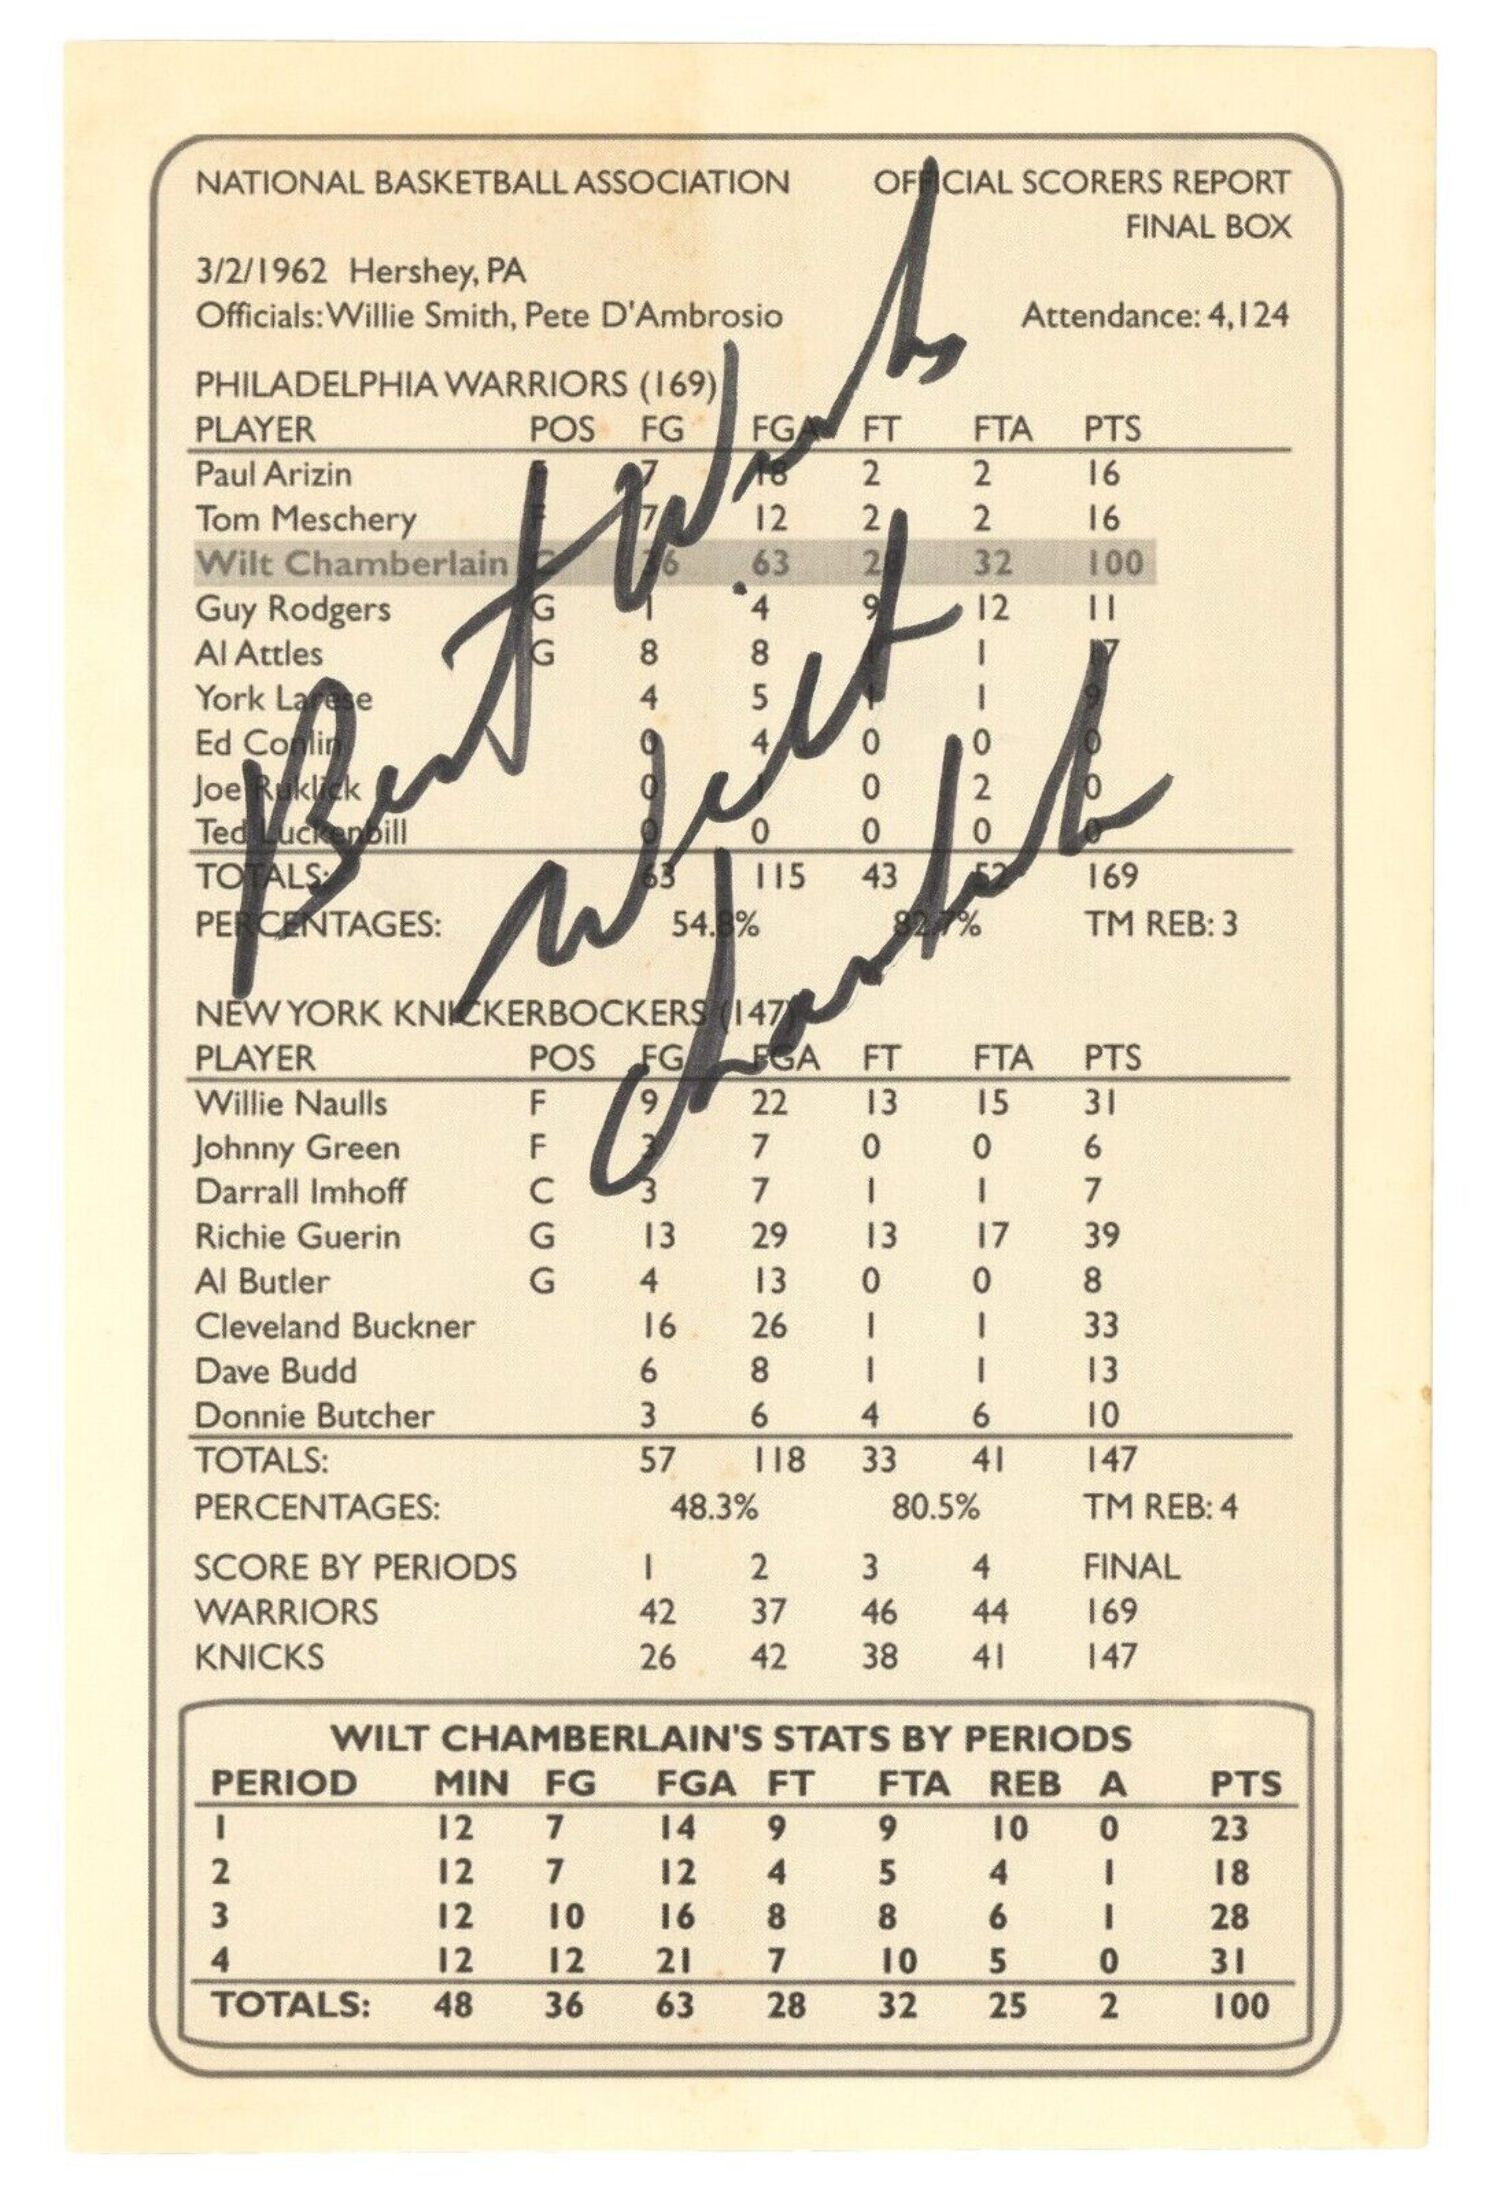 NATIONAL BASKETBALL ASSOCIATION OFFICIAL SCORERS REPORT
FINAL BOX
3/2/1962 Hershey, PA
Officials: Willie Smith, Pete D'Ambrosio Attendance: 4,124
PHILADELPHIA WARRIORS (169)
PLAYER POS FG FGA FT FTA PTS
Paul Arizin F 7 18 2 2 16
Tom Meschery F 7 12 2 2 16
Wilt Chamberlain C 36 63 28 32 100
Guy Rodgers G 1 4 9 12 11
Al Attles G 8 8 1 17
York Larese 4 5 1 1 9
Ed Conlin 0 4 0 0 0
Joe Ruklick 0 1 0 2 0
Ted Luckenbill 0 0 0 0 0
TOTALS: 63 115 43 52 169
PERCENTAGES: 54.8% 82.7% TM REB: 3
NEW YORK KNICKERBOCKERS (147)
PLAYER POS FG FGA FT FTA PTS
Willie Naulls F 9 22 13 15 31
Johnny Green F 3 7 0 0 6
Darrall Imhoff C 3 7 1 1 7
Richie Guerin G 13 29 13 17 39
Al Butler G 4 13 0 0 8
Cleveland Buckner 16 26 1 1 33
Dave Budd 6 8 1 1 13
Donnie Butcher 3 6 4 6 10
TOTALS: 57 118 33 41 147
PERCENTAGES: 48.3% 80.5% TM REB: 4
SCORE BY PERIODS 1 2 3 4 FINAL
WARRIORS 42 37 46 44 169
KNICKS 26 42 38 41 147
WILT CHAMBERLAIN'S STATS BY PERIODS
PERIOD MIN FG FGA FT FTA REB A PTS
1 12 7 14 9 9 10 0 23
2 12 7 12 4 5 4 1 18
3 12 10 16 8 8 6 1 28
4 12 12 21 7 10 5 0 31
TOTALS: 48 36 63 28 32 25 2 100
Best Wishes
Wilt
Chamberlain